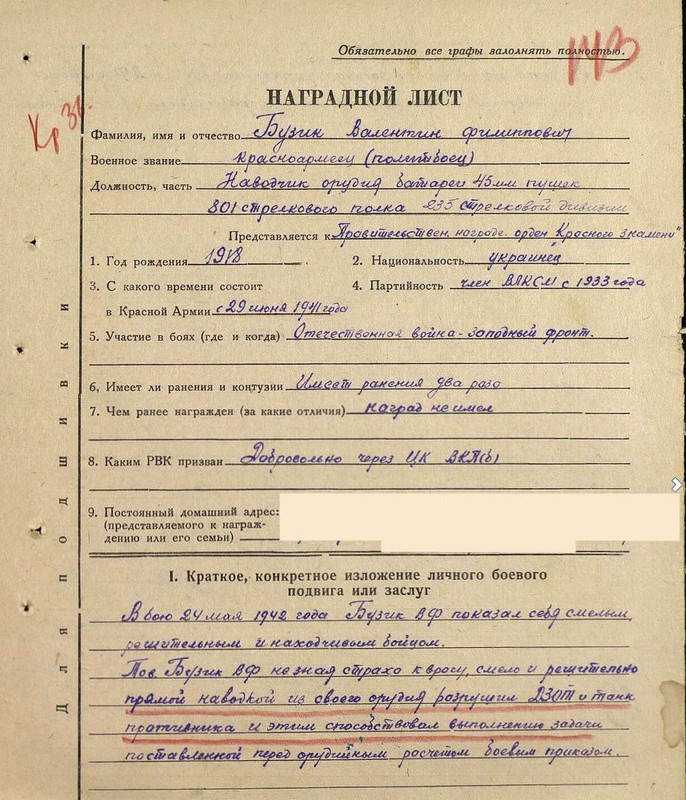 Обязательно все графы заполнять полностью.
143
Кр Зн.
НАГРАДНОЙ ЛИСТ
Фамилия, имя и отчество Бузик Валентин Филиппович
Военное звание красноармеец (политбоец)
Должность, часть Наводчик орудия батареи 45мм пушек
801 стрелкового полка 235 стрелковой дивизии
Представляется к Правительствен. награде орден "Красного знамени"
1. Год рождения 1918 2. Национальность украинец
3. С какого времени состоит 4. Партийность член ВЛКСМ с 1933 года
в Красной Армии с 29 июня 1941 года
5. Участие в боях (где и когда) Отечественная война - западный фронт.
6. Имеет ли ранения и контузии Имеет ранения два раза
7. Чем ранее награжден (за какие отличия) наград не имел
8. Каким РВК призван Добровольно через ЦК ВКП(б)
9. Постоянный домашний адрес:
(представляемого к награж-
дению или его семьи)
I. Краткое, конкретное изложение личного боевого
подвига или заслуг
В бою 24 мая 1942 года Бузик ВФ показал себя смелым,
решительным и находчивым бойцом.
Тов Бузик ВФ не зная страха к врагу, смело и решительно
прямой наводкой из своего орудия разрушил 2ЗОТ и танк
противника и этим способствовал выполнению задачи
поставленной перед орудийным расчетом боевым приказом.
Для подшивки